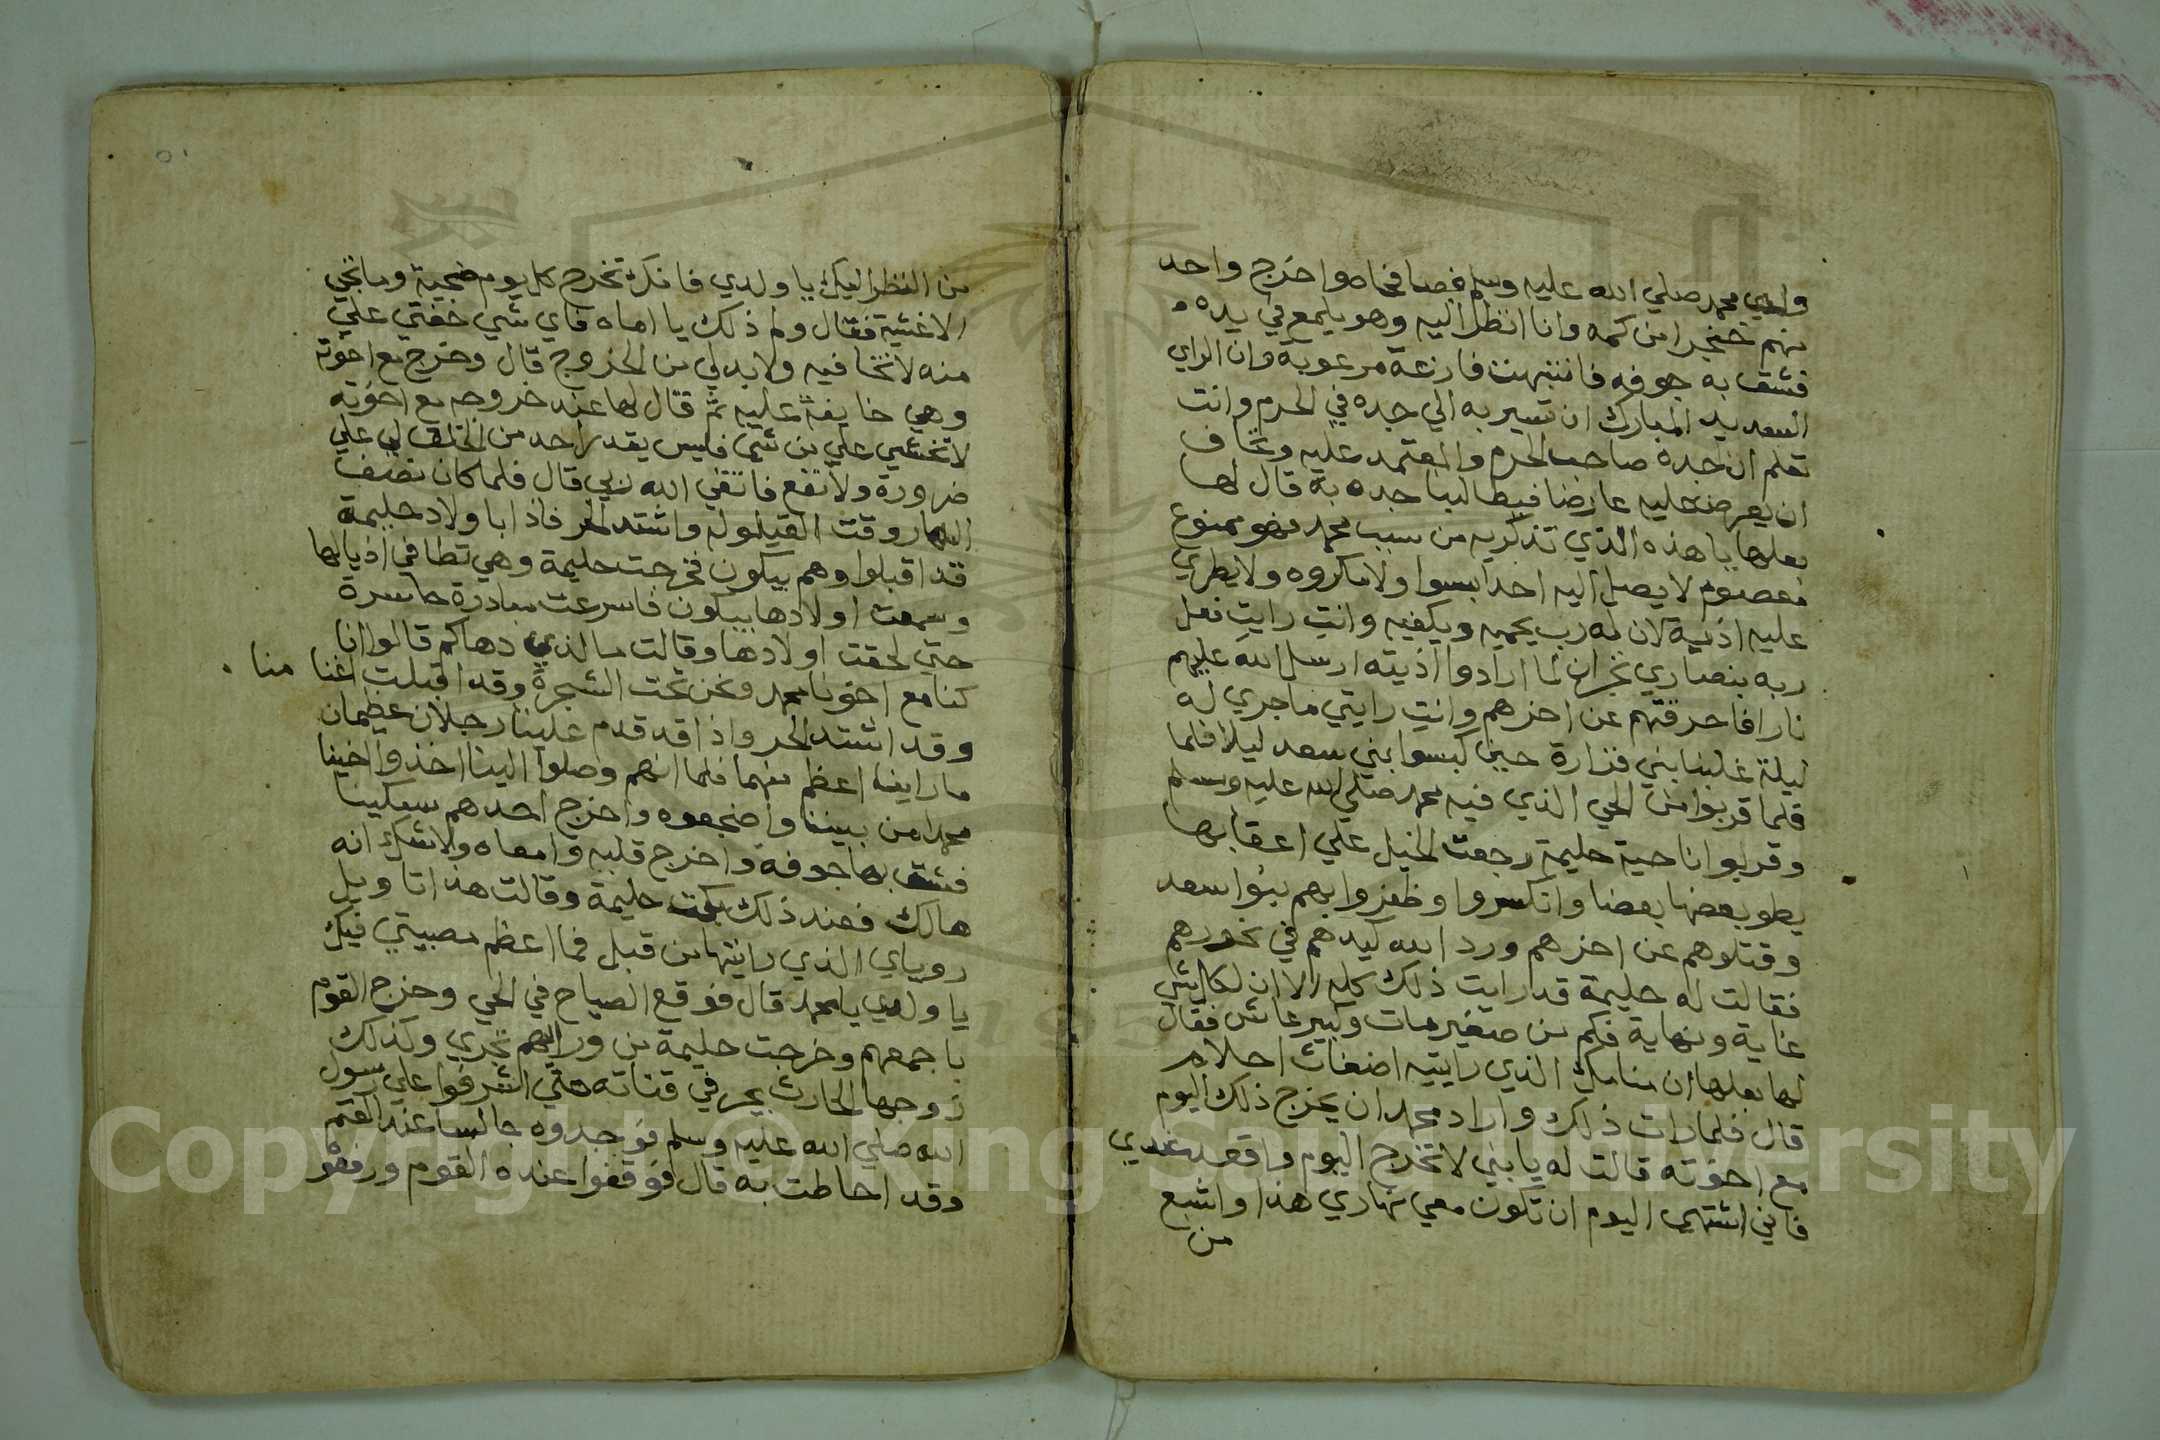 وابني محمد صلي الله عليه وسلم فصافحاه واخرج واحد
منهم خنجرا من كمه وانا انظر اليه وهو يلمع في يده
فشق به جوفه فانتبهت فازعة مرعوبة وان الراي
السديد المبارك ان تسير به الي جده في الحرم وانت
تعلم ان جده صاحب الحرم والمعتمد عليه ونخاف
ان يعرض عليه عارضا فيطالبنا جده به قال لها
بعلها يا هذه الذي تذكريه من سبب محمد فهو ممنوع
معصوم لا يصل اليه احدا بسوا ولا مكروه ولا يطري
عليه اذية لان له رب يحميه ويكفيه وانت رايت فعل
ربه بنصاري نجران لما ارادوا اذيته ارسل الله عليهم
نارا فاحرقتهم عن اخرهم وانت رايتي ماجري له
ليلة غلبنا بني فزارة حين كبسوا بني سعد ليلا فلما
فلما قربوا من الحي الذي فيه محمد صلي الله عليه وسلم
وقربوا ناحية حليمة رجعت الخيل علي اعقابها
يطو بعضها بعضا وانكسروا وظفروا بهم بنوا سعد
وقتلوهم عن اخرهم ورد الله كيدهم في نحورهم
فقالت له حليمة قد رايت ذلك كله الا ان لكل شي
غاية ونهاية فكم من صغير مات وكبير عاش فقال
لها بعلها ان منامك الذي رايتيه اضغاث احلام
قال فلما رات ذلك واراد محمد ان يخرج ذلك اليوم
مع اخوته قالت له يا بني لا تخرج اليوم واقعد عندي
فاني اشتهي اليوم ان تكون معي نهاري هذا واشبع
من
٥١
من النظر اليك يا ولدي فانك تخرج كل يوم ضحية وما تجي
الا عشية فقال ولم ذلك يا اماه فاي شي خفتي علي
منه لا تخافيه ولا بد لي من الخروج قال وخرج مع اخوته
وهي خايفة عليه ثم قال لها عند خروجه مع اخوته
لا تخشي علي من شي فليس يقدر احد من الخلق لي علي
ضرورة ولا نفع فاتقي الله ربي قال فلما كان نصف
النهار وقت القيلوله واشتد الحر فاذا باولاد حليمة
قد اقبلوا وهم يبكون فخرجت حليمة وهي تطا في اذيالها
وسمعت اولادها يبكون فاسرعت مبادرة حاسرة
حتي لحقت اولادها وقالت ما الذي دهاكم قالوا انا
كنا مع اخونا محمد ونحن تحت الشجرة وقد اقبلت اغنامنا
وقد اشتد الحر واذا قد قدم علينا رجلان عظيمان
ما راينا اعظم منهما فلما انهم وصلوا الينا اخذوا اخينا
محمدا من بيننا واضجعوه واخرج احدهم سكينا
فشق بها جوفه واخرج قلبه وامعاه ولا شك انه
هالك فعند ذلك بكت حليمة وقالت هذا تاويل
روياي الذي رايتها من قبل فما اعظم مصيبتي فيك
يا ولدي يا محمد قال فوقع الصياح في الحي وخرج القوم
باجمعهم وخرجت حليمة من ورايهم تجري وكذلك
زوجها الحارث يجر في قناته حتي اشرفوا علي رسول
الله صلي الله عليه وسلم فوجدوه جالسا عند الغنم
وقد احاطت به قال فوقفوا عنده القوم ورفعو
Copyright © King Saud University